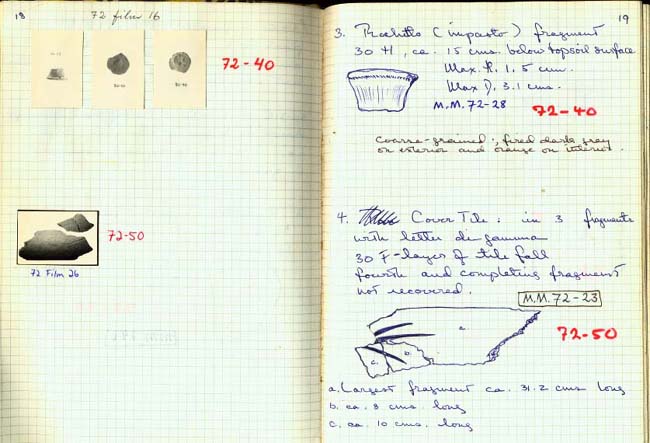 18
72 film 16
72-40
72-50
72 Film 26
19
3. Rocchetto (impasto) fragment
30 H, ca. 15 cms. below topsoil surface
Max. H. 1.5 cm.
Max D. 3.1 cms.
M.M. 72-28
72-40
coarse-grained; fired dark gray
on exterior and orange on interior.
4. Cover Tile: in 3 fragments
with letter digamma
30 F-layer of tile fall
fourth and completing fragment
not recovered.
M.M. 72-23
72-50
a.
b.
c.
a. Largest fragment ca. 31.2 cms long
b. ca. 8 cms. long
c. ca. 10 cms. long